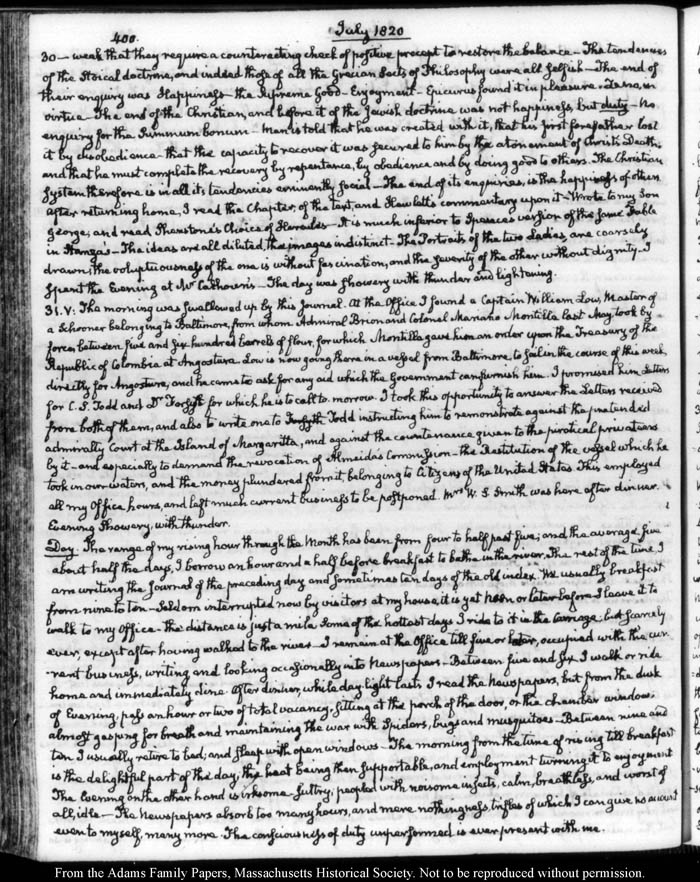 400.
July 1820
30 — weak that they require a counteracting check of positive precept to restore the balance — The tendencies
of the Stoical doctrine, and indeed those of all the Grecian Sects of Philosophy were all selfish — The end of
their enquiry was Happiness — the Supreme Good — Enjoyment — Epicurus found it in pleasure — Zeno, in
virtue — The end of the Christian, and before it of the Jewish doctrine was not happiness, but duty — No
enquiry for the Summum bonum — Man is told that he was created with it, that his first forefather lost
it by disobedience — that the capacity to recover it was secured to him by the atonement of Christ's Death,
and that he must complete the recovery by repentance, by obedience and by doing good to others. The Christian
System therefore is in all its tendencies eminently social — The end of its enquiries, is the happiness of others
After returning home, I read the Chapter, of the text, and Hewlett's commentary upon it — Wrote to my Son
George; and read Shenstone's Choice of Hercules — It is much inferior to Spence's version of the same Fable
in Stanza's — The ideas are all diluted, the images indistinct — The Portraits of the two Ladies, are coarsely
drawn; the voluptuousness of the one is without fascination, and the severity of the other without dignity — I
spent the Evening at Mr Calhoun's — The day was showery with thunder and lightening.
31. V. The morning was swallowed up by this Journal. At the Office I found a Captain William Low, Master of
a Schooner belonging to Baltimore, from whom Admiral Brion and Colonel Mariano Montilla last May, took by
force between five and six hundred barrels of flour, for which Montilla gave him an order upon the Treasury of the
Republic of Colombia at Angostura. Low is now going there in a vessel from Baltimore, to sail in the course of this week
directly for Angostura, and he came to ask for any aid which the Government can furnish him. I promised him Letters
for C. S. Todd and Dr Forsyth for which he is to call to-morrow. I took this opportunity to answer the Letters received
from both of them, and also to write one to Forsyth Todd instructing him to remonstrate against the pretended
admiralty Court at the Island of Margaritta, and against the countenance given to the piratical privateers
by it — and especially to demand the revocation of Almeida's Commission — the Restitution of the vessel which he
took in our waters, and the money plundered from it, belonging to Citizens of the United States This employed
all my Office hours, and left much current business to be postponed. Mrs W. S. Smith was here after dinner.
Evening showery, with thunder.
Day. The range of my rising hour through the Month has been from four to half past five; and the average, five
about half the days, I borrow an hour and a half before breakfast to bathe in the river, The rest of the time I
am writing the Journal of the preceding day and sometimes ten days of the old index. We usually breakfast
from nine to ten — Seldom interrupted now by visitors at my house, it is yet Noon or later before I leave it to
walk to my Office — the distance is just a mile some of the hottest days I ride to it in the Carriage, but scarcely
ever, except after having walked to the river — I remain at the Office till five or later, occupied with the cur-
rent business, writing and looking occasionally into Newspapers — Between five and six I walk or ride
home and immediately dine. After dinner, while day light lasts I read the newspapers, but from the dusk
of Evening, pass an hour or two of total vacancy, sitting at the porch of the door, or the chamber window;
almost gasping for breath and maintaining the war with Spiders, bugs and musquitoes — Between nine and
ten I usually retire to bed; and sleep with open windows — The morning from the time of rising till breakfast
is the delightful part of the day; the heat being then supportable, and employment turning it to enjoyment
The Evening on the other hand is irksome, sultry, peopled with noisome insects, calm, breathless, and worst of
all, idle — The Newspapers absorb too many hours, and mere nothingness, trifles of which I can give no account
even to myself, many more. The consciousness of duty unperformed is ever present with me.
From the Adams Family Papers, Massachusetts Historical Society. Not to be reproduced without permission.